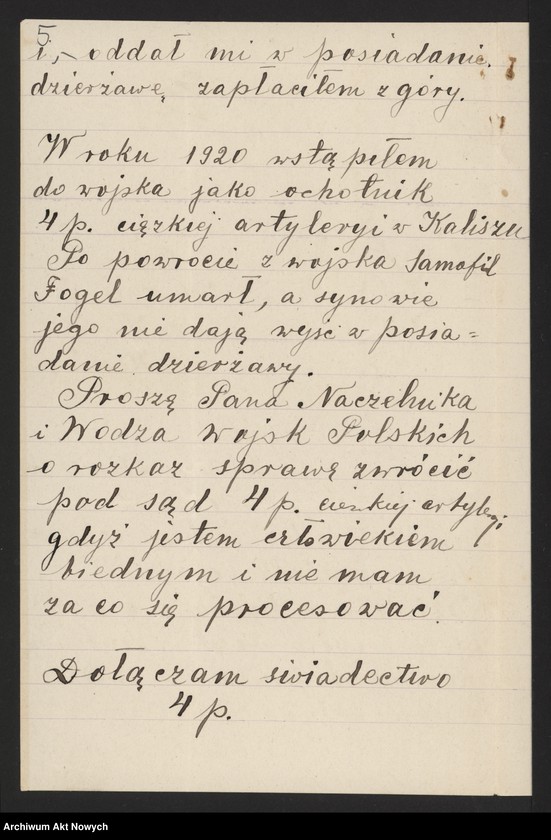 5
i, – oddał mi w posiadanie.
dzierżawę zapłaciłem z góry.
W roku 1920 wstąpiłem
do wojska jako ochotnik
4 p. ciężkiej artyleryi w Kaliszu
Po powrocie z wojska Samafil
Fogel umarł, a synowie
jego nie dają wyść w posia=
danie dzierżawy.
Proszę Pana Naczelnika
i Wodza Wojsk Polskich
o rozkaz sprawę zwrócić
pod sąd 4 p. cienkiej artyleryi
gdyż jestem człowiekiem
biednym i nie mam
za co się procesować.
Dołączam siviadectwo
4 p.
Archiwum Akt Nowych